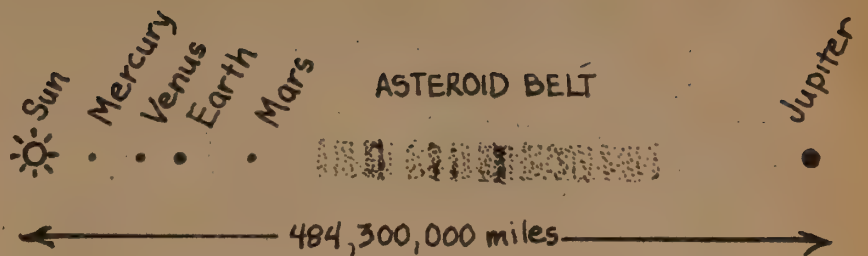 Sun
Mercury
Venus
Earth
Mars
ASTEROID BELT
Jupiter
484,300,000 miles